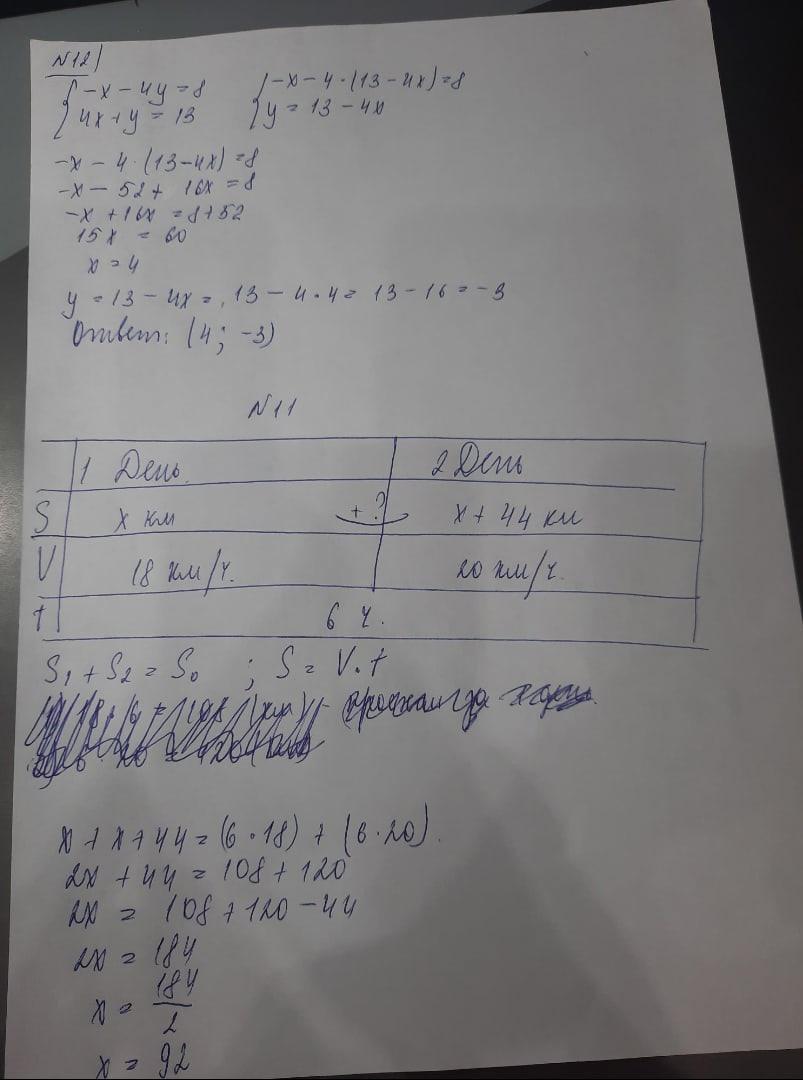 N12)
{-x - 4y = 8 {-x - 4·(13-4x) = 8
{4x + y = 13 {y = 13 - 4x
-x - 4·(13-4x) = 8
-x - 52 + 16x = 8
-x + 16x = 8 + 52
15x = 60
x = 4
y = 13 - 4x = 13 - 4·4 = 13 - 16 = -3
Ответ: (4; -3)
N11
1 День 2 День
S x км + ? x + 44 км
V 18 км/ч. 20 км/ч.
t 6 ч.
S₁ + S₂ = S₀ ; S = V·t
x + x + 44 = (6·18) + (6·20).
2x + 44 = 108 + 120
2x = 108 + 120 - 44
2x = 184
x = 184/2
x = 92